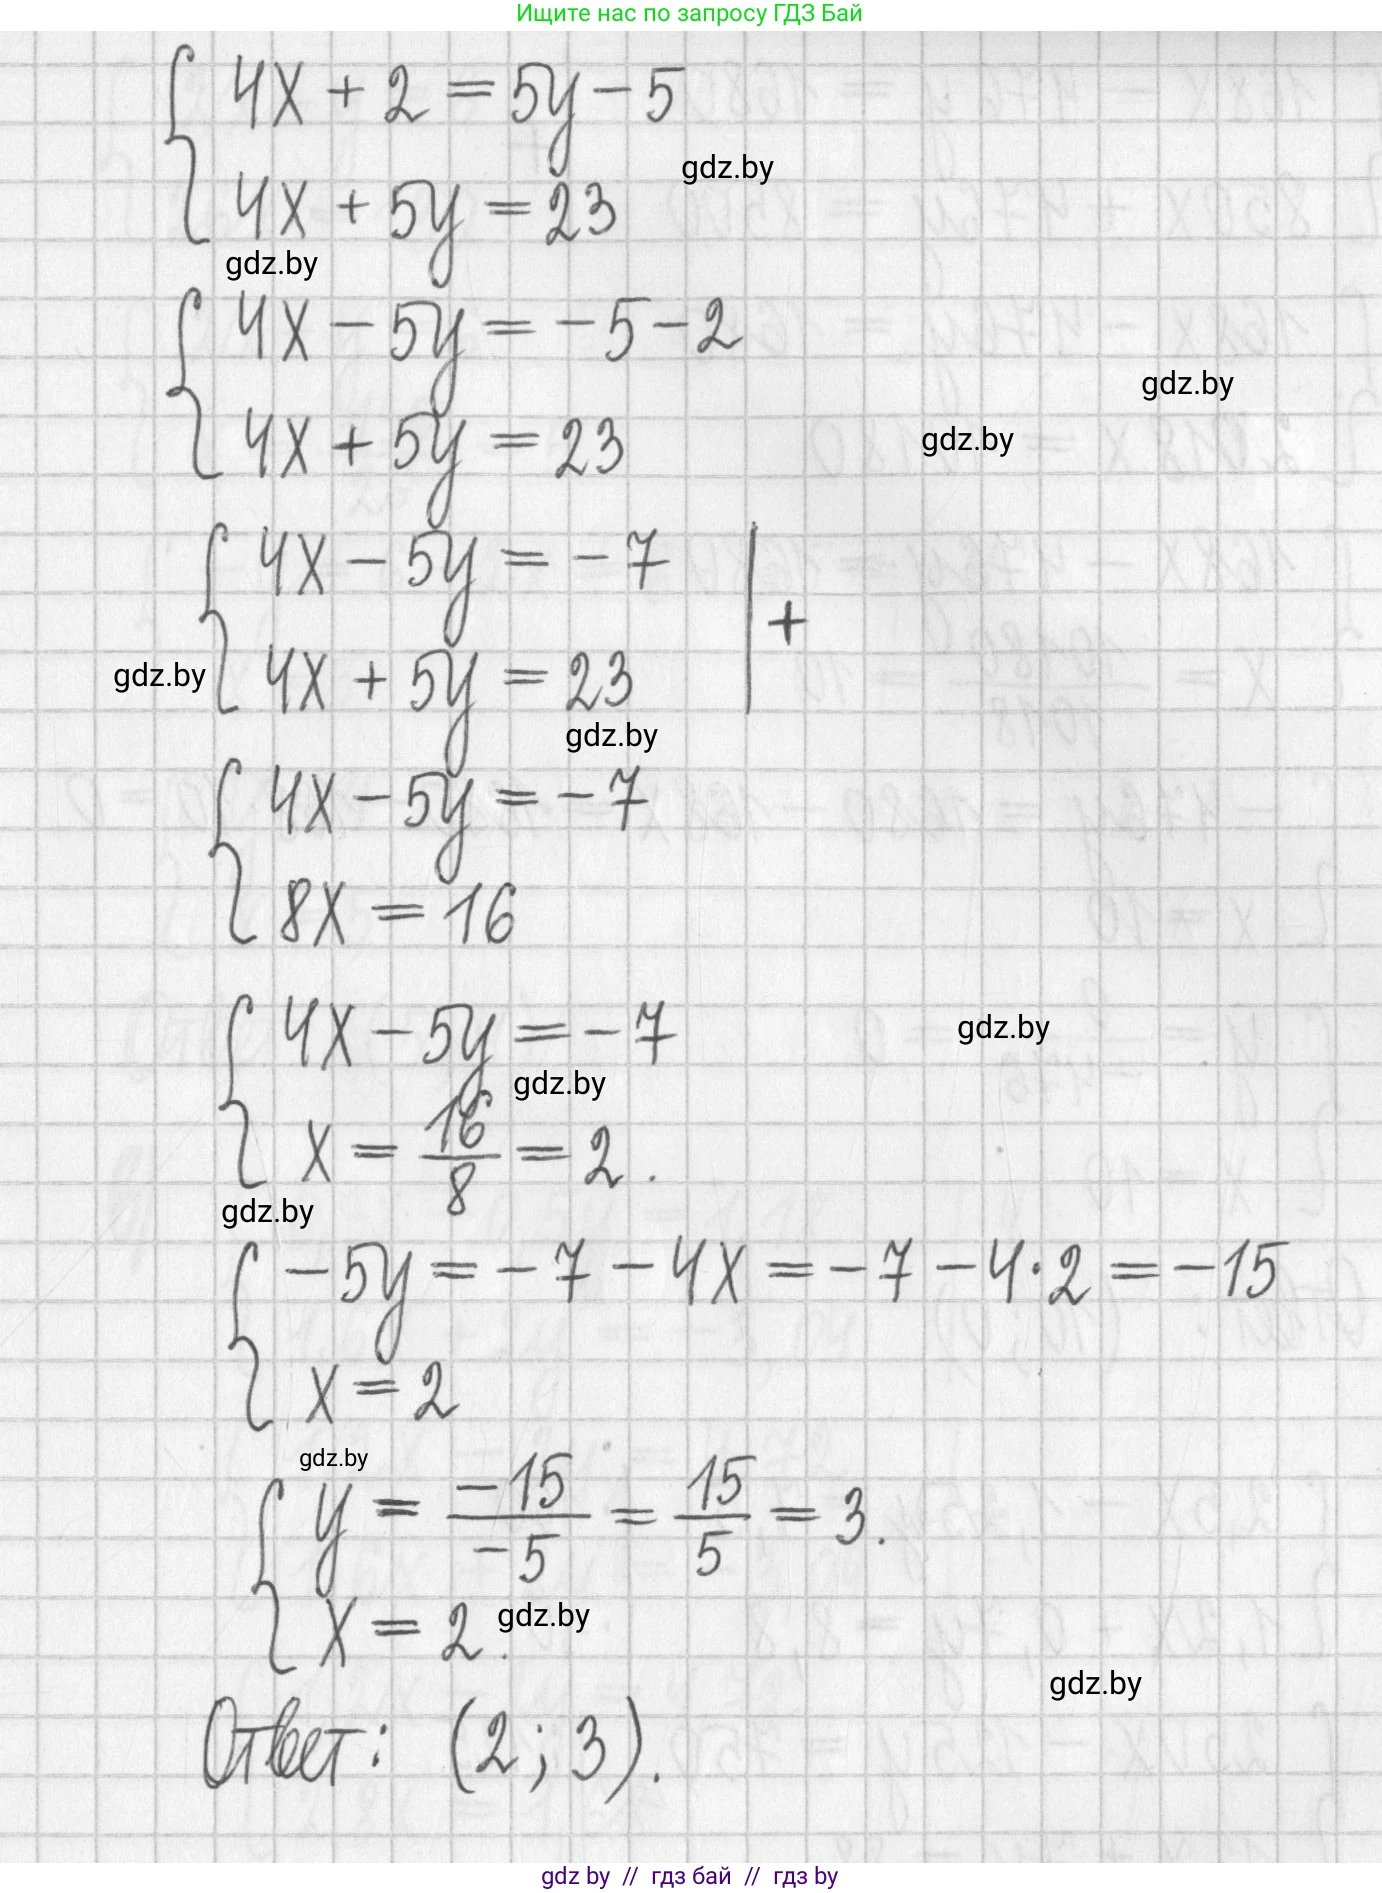 Ищите нас по запросу ГДЗ Бай
4x + 2 = 5y - 5
gdz.by
4x + 5y = 23
gdz.by
4x - 5y = -5 - 2
gdz.by
4x + 5y = 23
gdz.by
4x - 5y = -7
+
4x + 5y = 23
gdz.by
gdz.by
4x - 5y = -7
8x = 16
4x - 5y = -7
gdz.by
gdz.by
x = 16/8 = 2.
gdz.by
-5y = -7 - 4x = -7 - 4·2 = -15
x = 2
gdz.by
y = -15/-5 = 15/5 = 3.
x = 2.
gdz.by
gdz.by
Ответ: (2; 3).
gdz by // гдз бай // гдз by